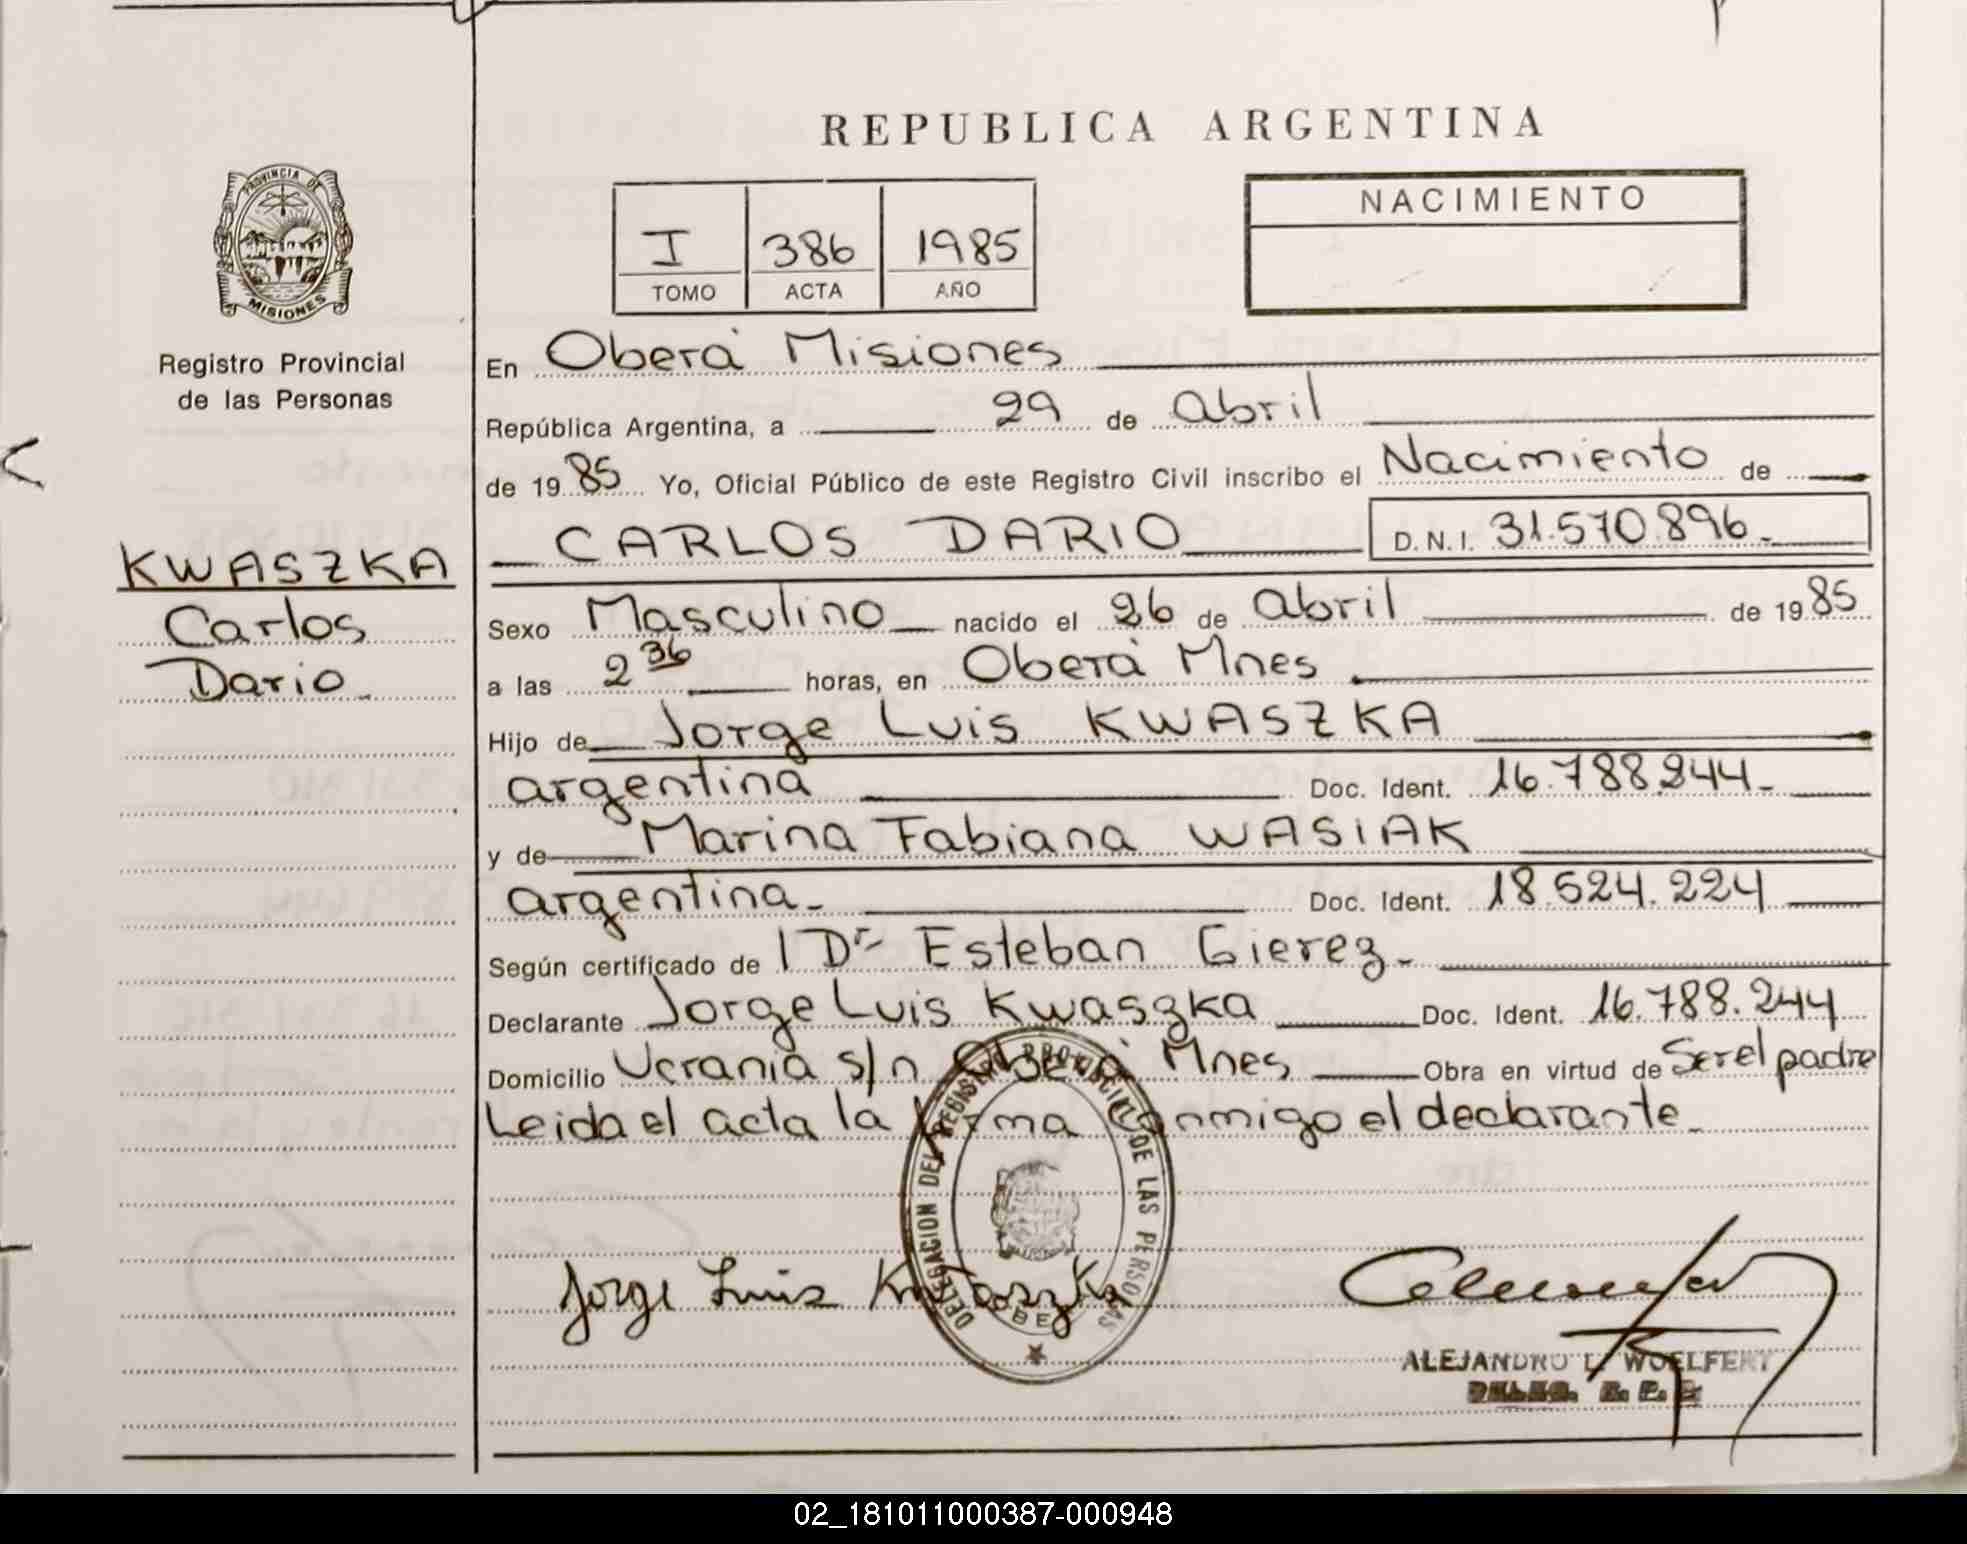 REPUBLICA ARGENTINA
PROVINCIA DE
MISIONES
Registro Provincial
de las Personas
I 386 1985
TOMO ACTA AÑO
NACIMIENTO
En Oberá Misiones
República Argentina, a 29 de abril
de 1985 Yo, Oficial Público de este Registro Civil inscribo el Nacimiento de
CARLOS DARIO D.N.I. 31.570.896.
KWASZKA
Carlos
Dario
Sexo Masculino nacido el 26 de abril de 1985
a las 2 36 horas, en Oberá Mnes
Hijo de Jorge Luis KWASZKA
argentina Doc. Ident. 16.788.244
y de Marina Fabiana WASIAK
argentina Doc. Ident. 18.524.224
Según certificado de l Dr Esteban Gierez.
Declarante Jorge Luis Kwaszka Doc. Ident. 16.788.244
Domicilio Ucrania s/n Oberá Mnes Obra en virtud de Ser el padre
Leida el acta la firma conmigo el declarante.
DELEGACION DEL REGISTRO PROVINCIAL DE LAS PERSONAS
Jorge Luis Kwaszka
ALEJANDRO L. WOELFERT
DELEG. R. P.
02_181011000387-000948